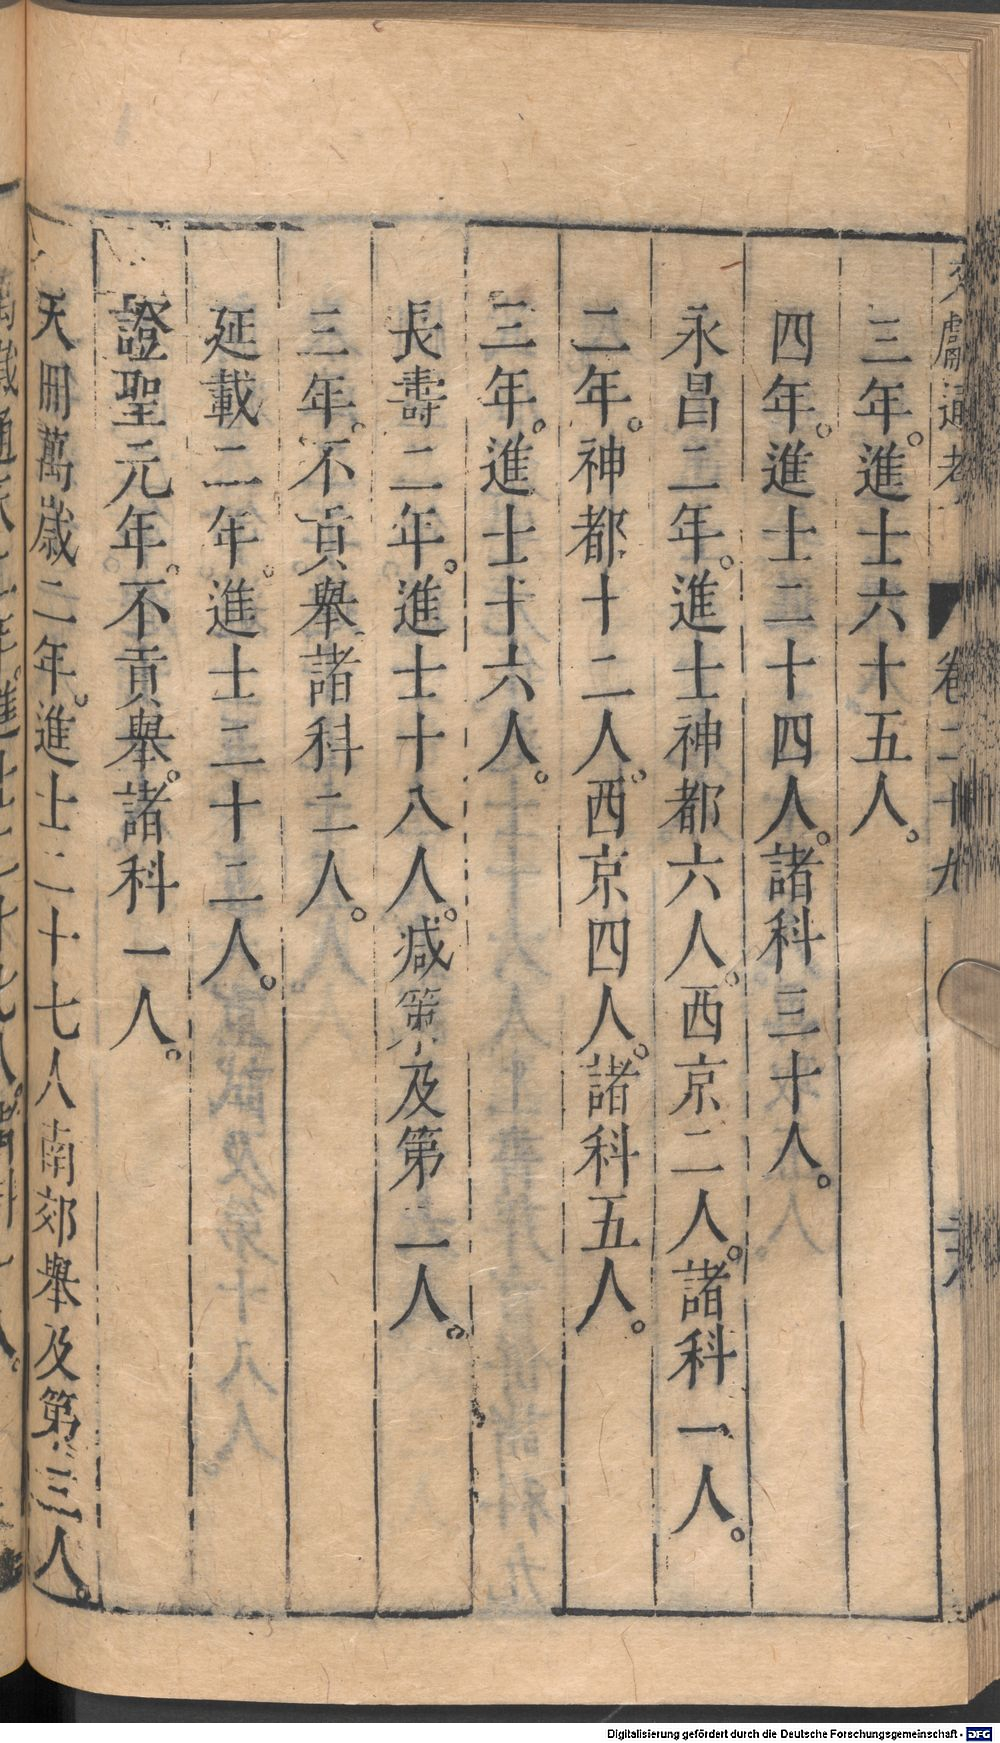 文獻通考 卷二十九
三年。進士六十五人。
四年。進士二十四人。諸科三十人。
永昌二年。進士神都六人。西京二人。諸科一人。
二年。神都十二人。西京四人。諸科五人。
三年。進士十六人。
長壽二年。進士十八人。減策及第二人。
三年。不貢舉。諸科二人。
延載二年。進士三十二人。
證聖元年。不貢舉。諸科一人。
天冊萬歲二年。進士二十七人南郊舉及第三人。
Digitalisierung gefördert durch die Deutsche Forschungsgemeinschaft - DFG